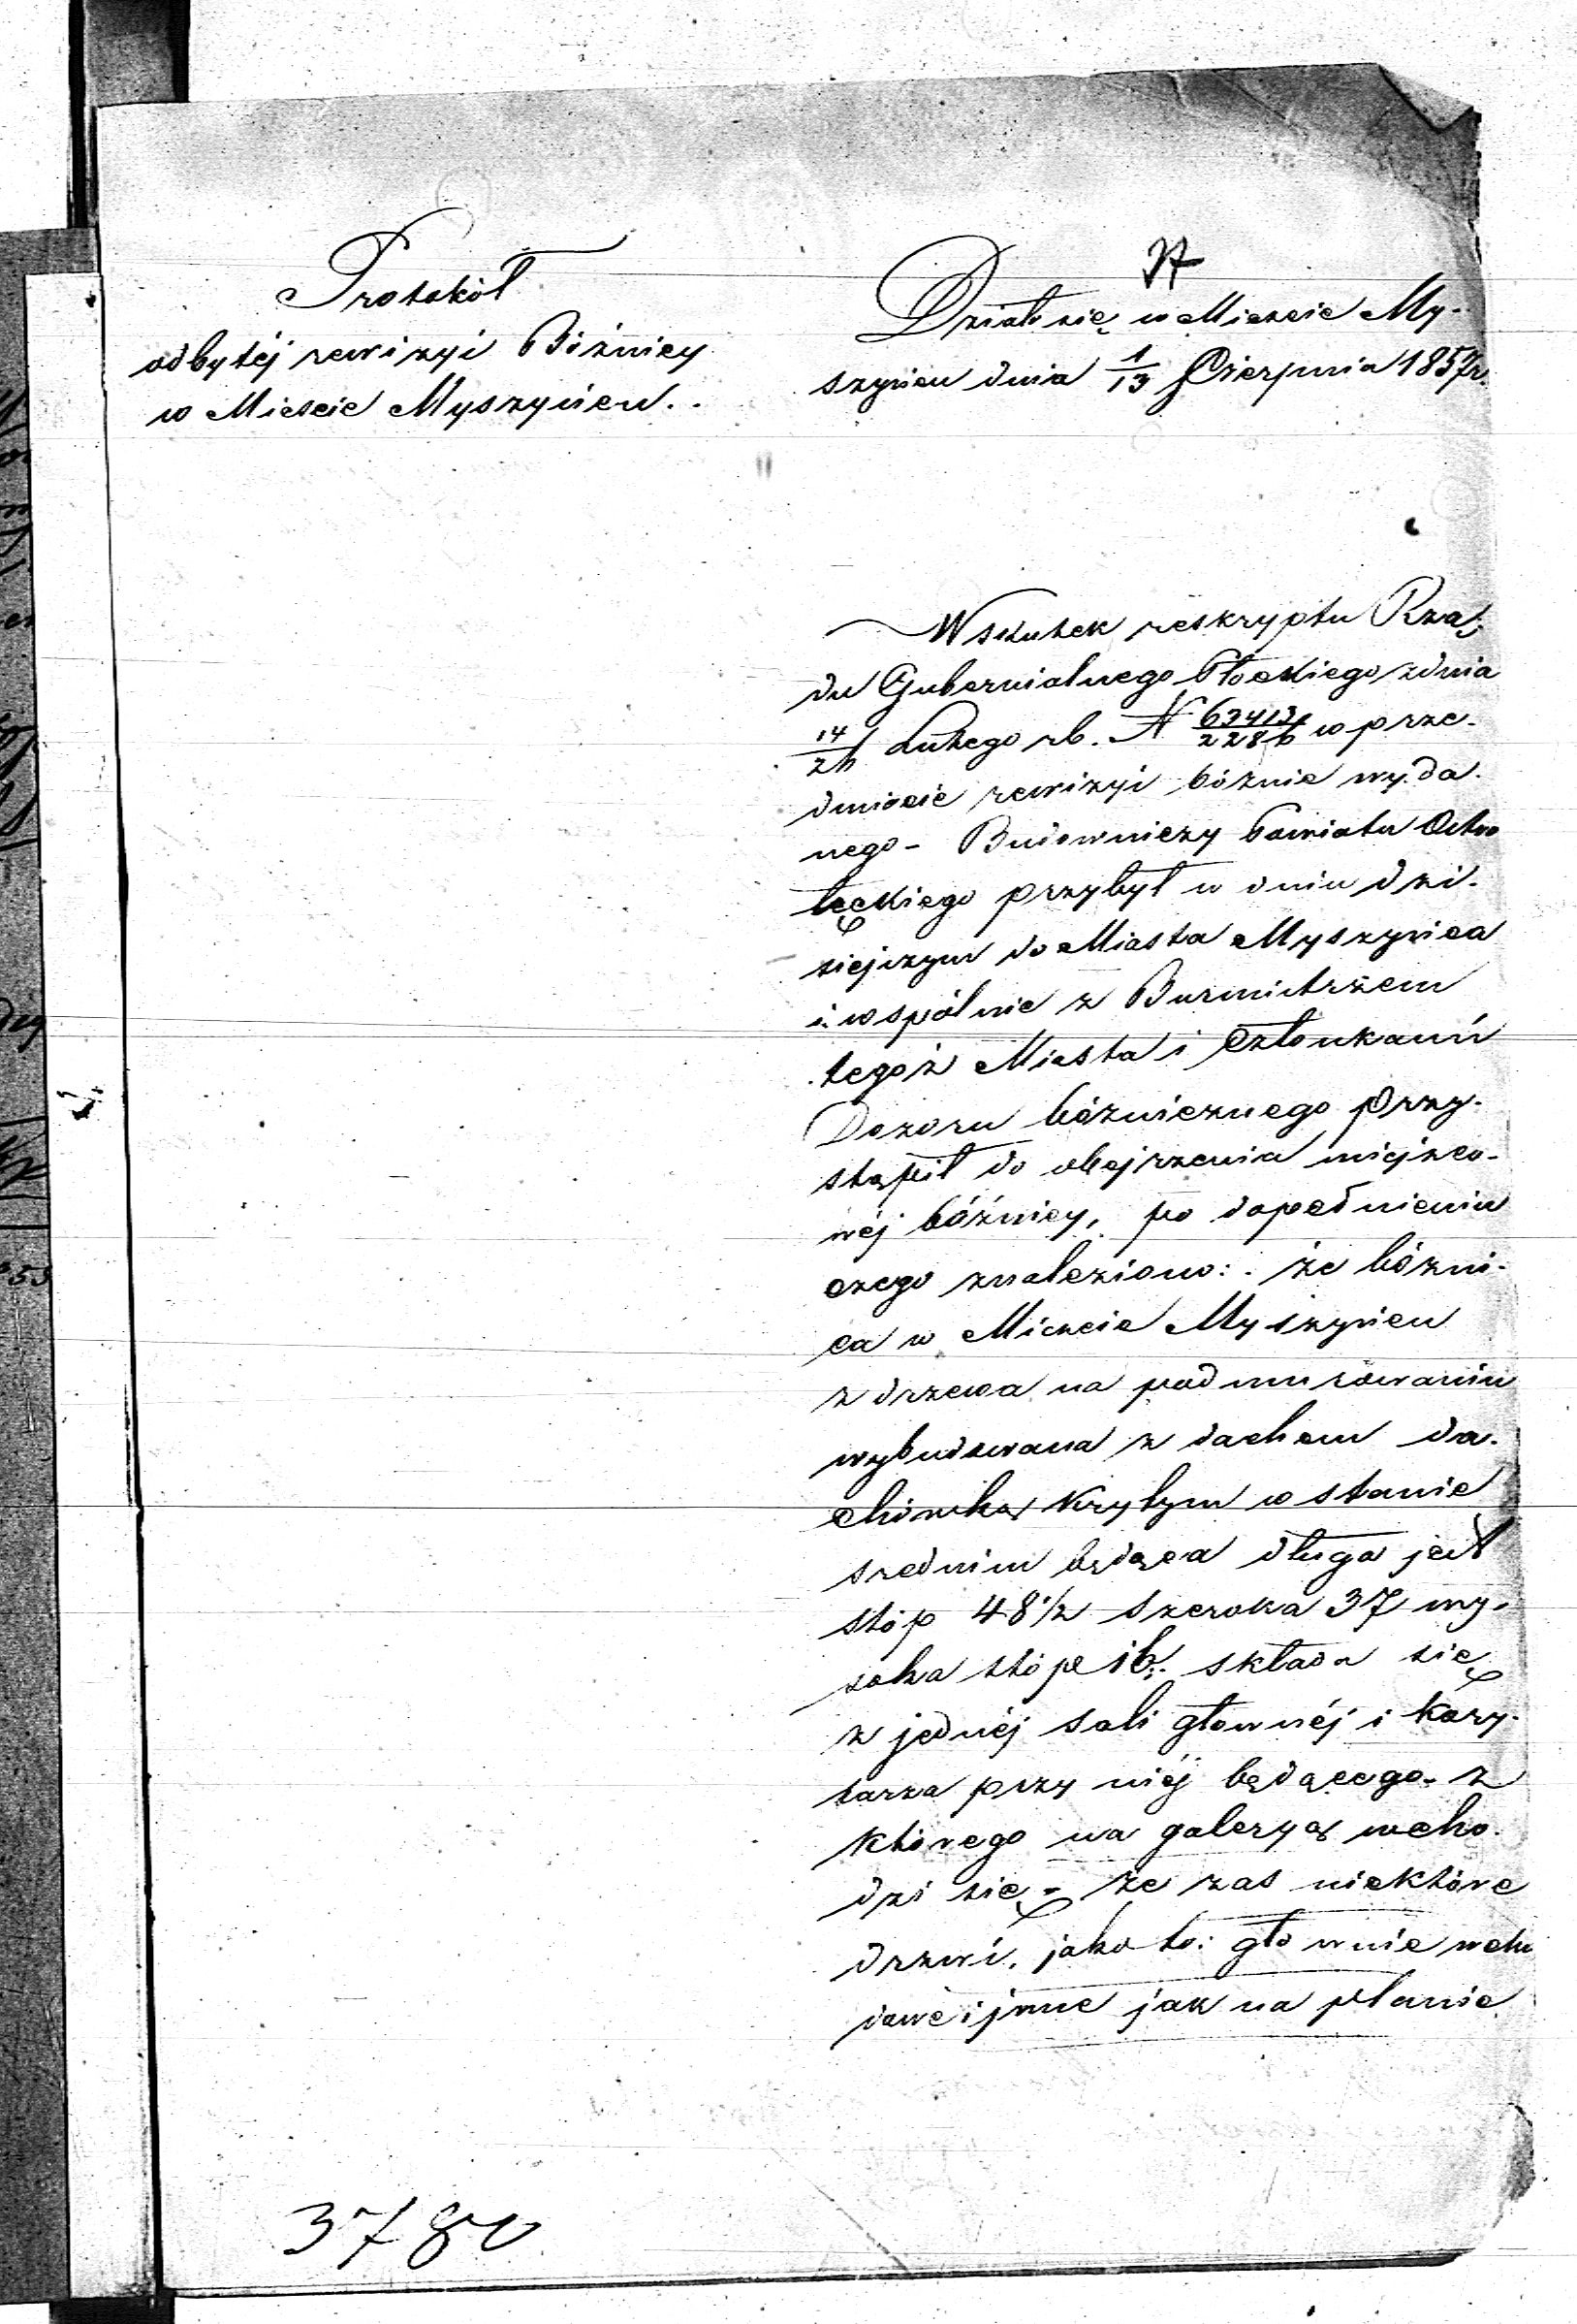 Protokół
odbytéj rewizyi Bóźnicy
w Mieście Myszyńcu.
Działo się w Mieście My-
szyńcu dnia 1/13 Sierpnia 1857r.
Wskutek reskryptu Rzą-
du Gubernialnego Płockiego z dnia
14/26 Lutego rb. N 63413/2286 w prze-
dmiocie rewizyi bóżnic wyda-
nego - Budowniczy Powiatu Ostro
łęckiego przybył w dniu dzi-
siejszym do Miasta Myszyńca
i wspólnie z Burmistrzem
tegoż Miasta i Członkami
Dozoru bóżnicznego przy-
stąpił do obejrzenia miejsco-
wéj bóźnicy, po dopełnieniu
czego znaleziono: że bóżni-
ca w Mieście Myszyńcu
z drzewa na podmurowaniu
wybudowana z dachem da-
chówką krytym w stanie
srednim będąca długa jest
stóp 48 1/2 szeroka 37 wy-
soka stóp 16. składa się
z jednéj sali głownéj i kory-
tarza przy niéj będącego - z
którego na galeryą wcho-
dzi się - że zas niektóre
drzwi, jako to: głownie wcho
dowe i jnne jak na planie
3780